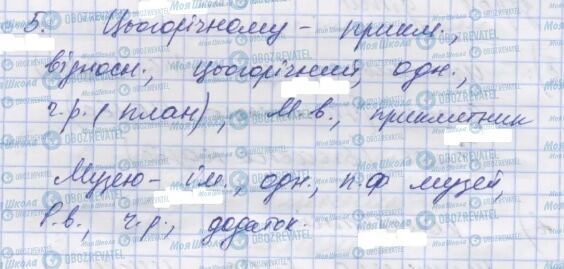 5. Цьогорічному – прикм.,
відносн., цьогорічний, одн.,
ч.р. (план), М.в., прикметник
Музею – ім., одн., п.ф музей,
Р.в., ч.р., додаток.